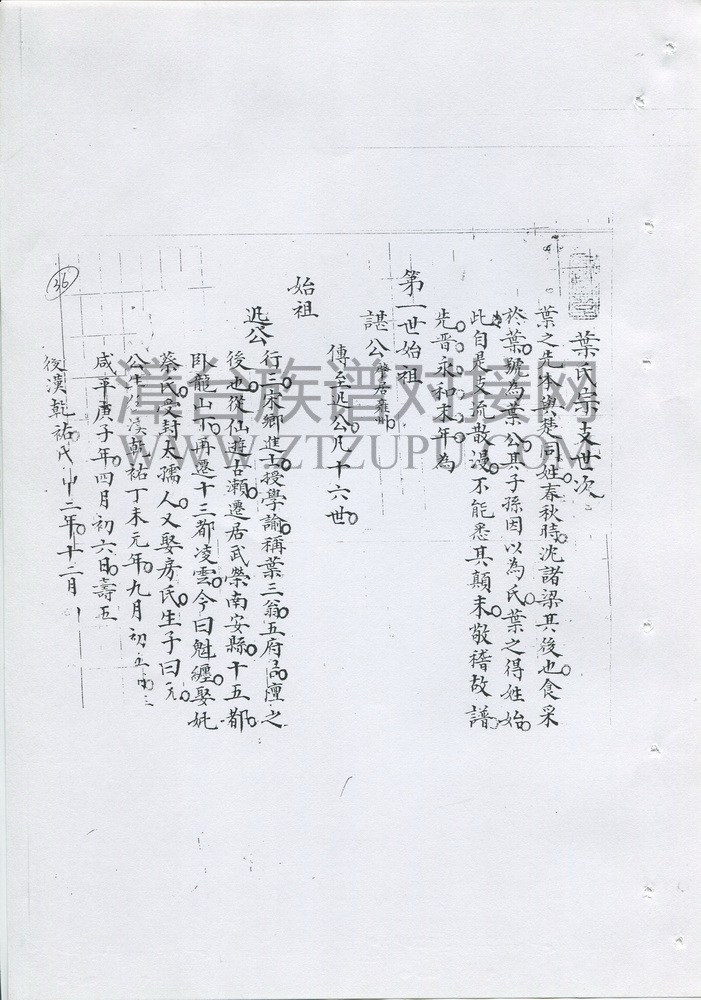 葉氏宗支世次
葉之先本與楚同姓春秋時沈諸梁其後也食采
於葉號為葉公其子孫因以為氏葉之得姓始
此自是支流散漫不能悉其顛末敬稽故譜
先晋永和末年為
第一世始祖
諶公肇居雍州
傳至迅公凡十六世
始祖
迅公
行三宋鄉進士授學諭稱葉三翁五府諱亶之
後也從仙遊古瀨遷居武榮南安縣十五都
臥龍山下再遷十三都凌雲今曰魁纏娶妣
蔡氏受封太孺人又娶房氏生子曰
公生 漢乾祐丁未元年九月初五
咸平庚子年四月初六日壽五
後漢乾祐戊申二年十二月
36
漳台族谱对接网
WWW.ZTZUPU.COM